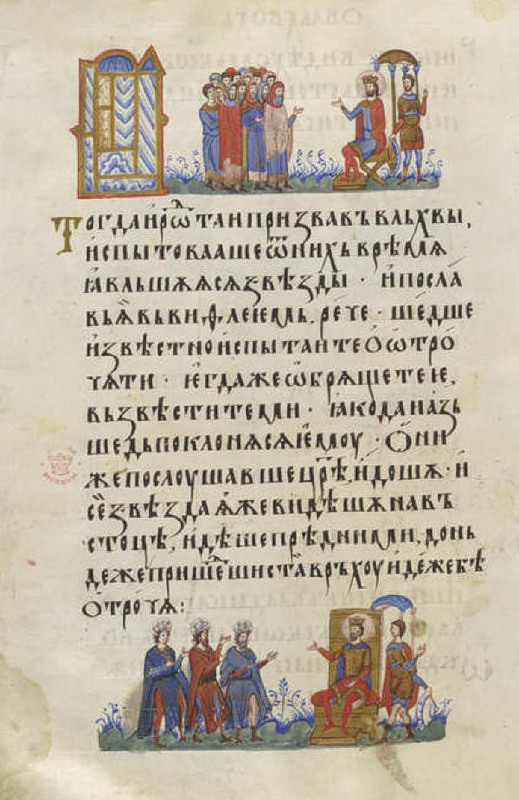 Тогда иръѡ таи призвавъ влъхвы,
испытовааше ѿ нихъ врѣмѧ
ꙗвльшѫѧсѧ ꙃвѣзды · и посла
вь ѧ вь виѳлеіемь, рече · шедше
извѣстно испытаите ѡ отро
чѧти · и егда же ѡбрѧщете іе,
възвѣстите ми · ꙗко да и азь
шедь поклонѧсѧ іемоу · Они
же послоушавше цр҃ѣ, идошѫ · и
се ꙃвѣзда ѫже видѣшѫ на въ
стоцѣ, идѣше прѣд ними, донь
деже пришеⷣши ста връхоу идеже бѣ
отрочѧ :